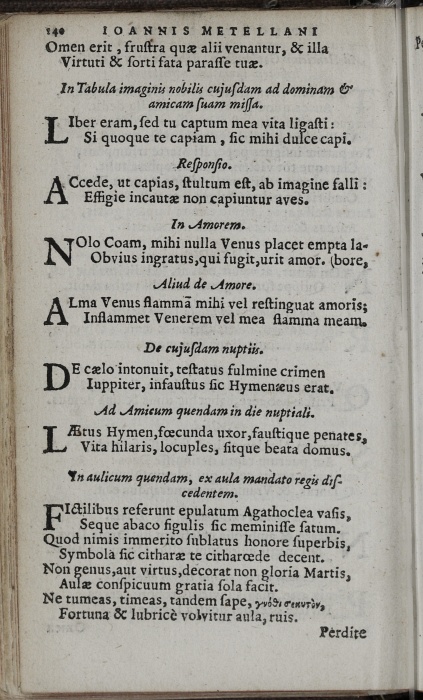 140 IOANNIS METELLANI
Omen erit, fruſtra quæ alii venantur, & illa
Virtuti & ſorti fata paraſſe tuæ.
In Tabula imaginis nobilis cujuſdam ad dominam &
amicam ſuam miſſa.
LIber eram, ſed tu captum mea vita ligaſti:
Si quoque te capiam, ſic mihi dulce capi.
Reſponſio.
ACcede, ut capias, ſtultum eſt, ab imagine falli:
Effigie incautæ non capiuntur aves.
In Amorem.
NOlo Coam, mihi nulla Venus placet empta la-
Obvius ingratus, qui fugit, urit amor. (bore,
Aliud de Amore.
ALma Venus flammã mihi vel reſtinguat amoris;
Inflammet Venerem vel mea flamma meam.
De cujuſdam nuptiis.
DE cælo intonuit, teſtatus fulmine crimen
Iuppiter, infauſtus ſic Hymenæus erat.
Ad Amicum quendam in die nuptiali.
LÆtus Hymen, fœcunda uxor, fauſtique penates,
Vita hilaris, locuples, ſitque beata domus.
In aulicum quendam, ex aula mandato regis diſ-
cedentem.
FIctilibus referunt epulatum Agathoclea vaſis,
Seque abaco figulis ſic meminiſſe ſatum.
Quod nimis immerito ſublatus honore ſuperbis,
Symbola ſic citharæ te citharœde decent.
Non genus, aut virtus, decorat non gloria Martis,
Aulæ conſpicuum gratia ſola facit.
Ne tumeas, timeas, tandem ſape, γνῶθι σεαυτὸν,
Fortuna & lubricè volvitur aula, ruis.
Perdite